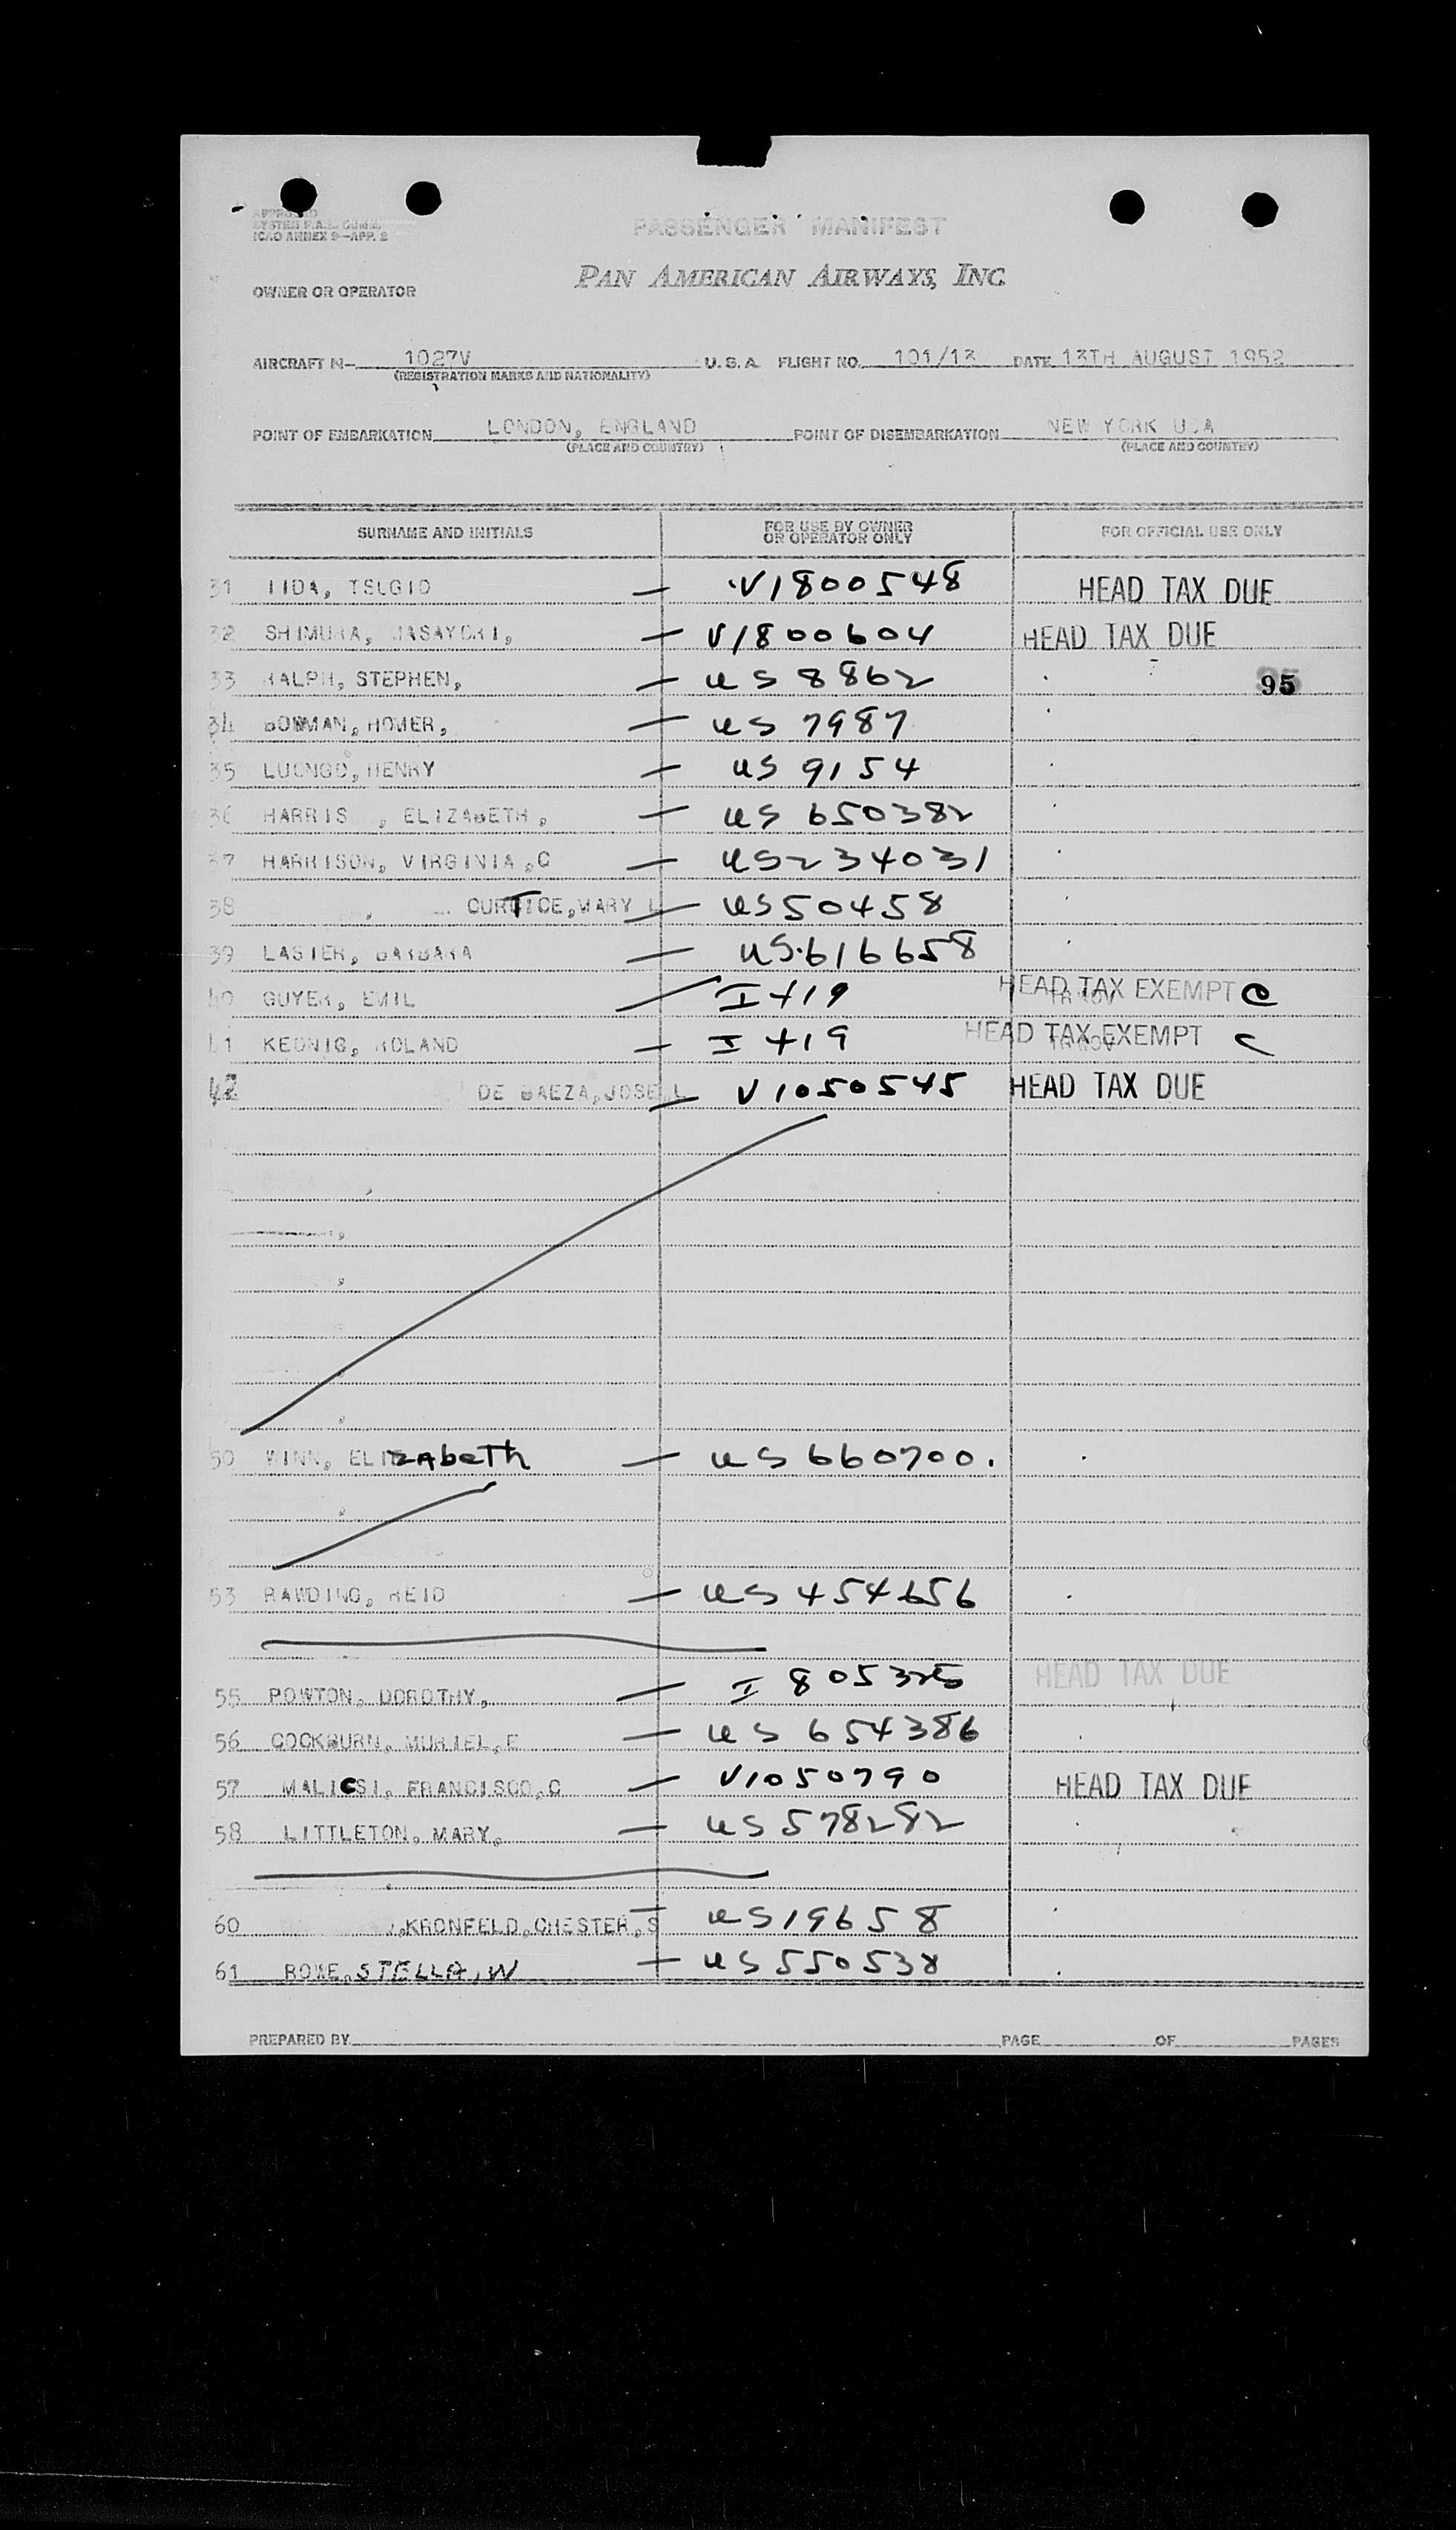 APPROVED
SYSTEM P.A.A. COMM.
ICAO ANNEX 9—APP. 2
PASSENGER MANIFEST
PAN AMERICAN AIRWAYS, INC.
OWNER OR OPERATOR
AIRCRAFT N— 1027V U. S. A. FLIGHT NO. 101/13 DATE 13TH AUGUST 1952
(REGISTRATION MARKS AND NATIONALITY)
POINT OF EMBARKATION LONDON, ENGLAND POINT OF DISEMBARKATION NEW YORK USA
(PLACE AND COUNTRY) (PLACE AND COUNTRY)
SURNAME AND INITIALS FOR USE BY OWNER OR OPERATOR ONLY FOR OFFICIAL USE ONLY
31 IIDA, TSUGIO — V1800548 HEAD TAX DUE
32 SHIMURA, MASAYORI, — V1800604 HEAD TAX DUE
33 RALPH, STEPHEN, — US 8862 95
34 BOWMAN, HOMER, — US 7987
35 LUONGO, HENRY — US 9154
36 HARRIS , ELIZABETH, — US 650382
37 HARRISON, VIRGINIA,C — US234031
38 , CURTICE,MARY L — US50458
39 LASTER, BARBARA — US.616658
40 GUYER, EMIL — I 419 HEAD TAX EXEMPT C
41 KEONIG, ROLAND — I 419 HEAD TAX EXEMPT C
42 DE BAEZA,JOSE,L — V1050545 HEAD TAX DUE
50 WINN, ELIZAbeTh — US 660700.
53 RAWDING, REID — US 454656
55 POWTON, DOROTHY, — I 805325 HEAD TAX DUE
56 COCKBURN, MURIEL,E — US 654386
57 MALICSI, FRANCISCO,C — V1050790 HEAD TAX DUE
58 LITTLETON, MARY, — US 578282
60 ,KRONFELD,CHESTER,S — US19658
61 ROWE,STELLA,W — US550538
PREPARED BY PAGE OF PAGES